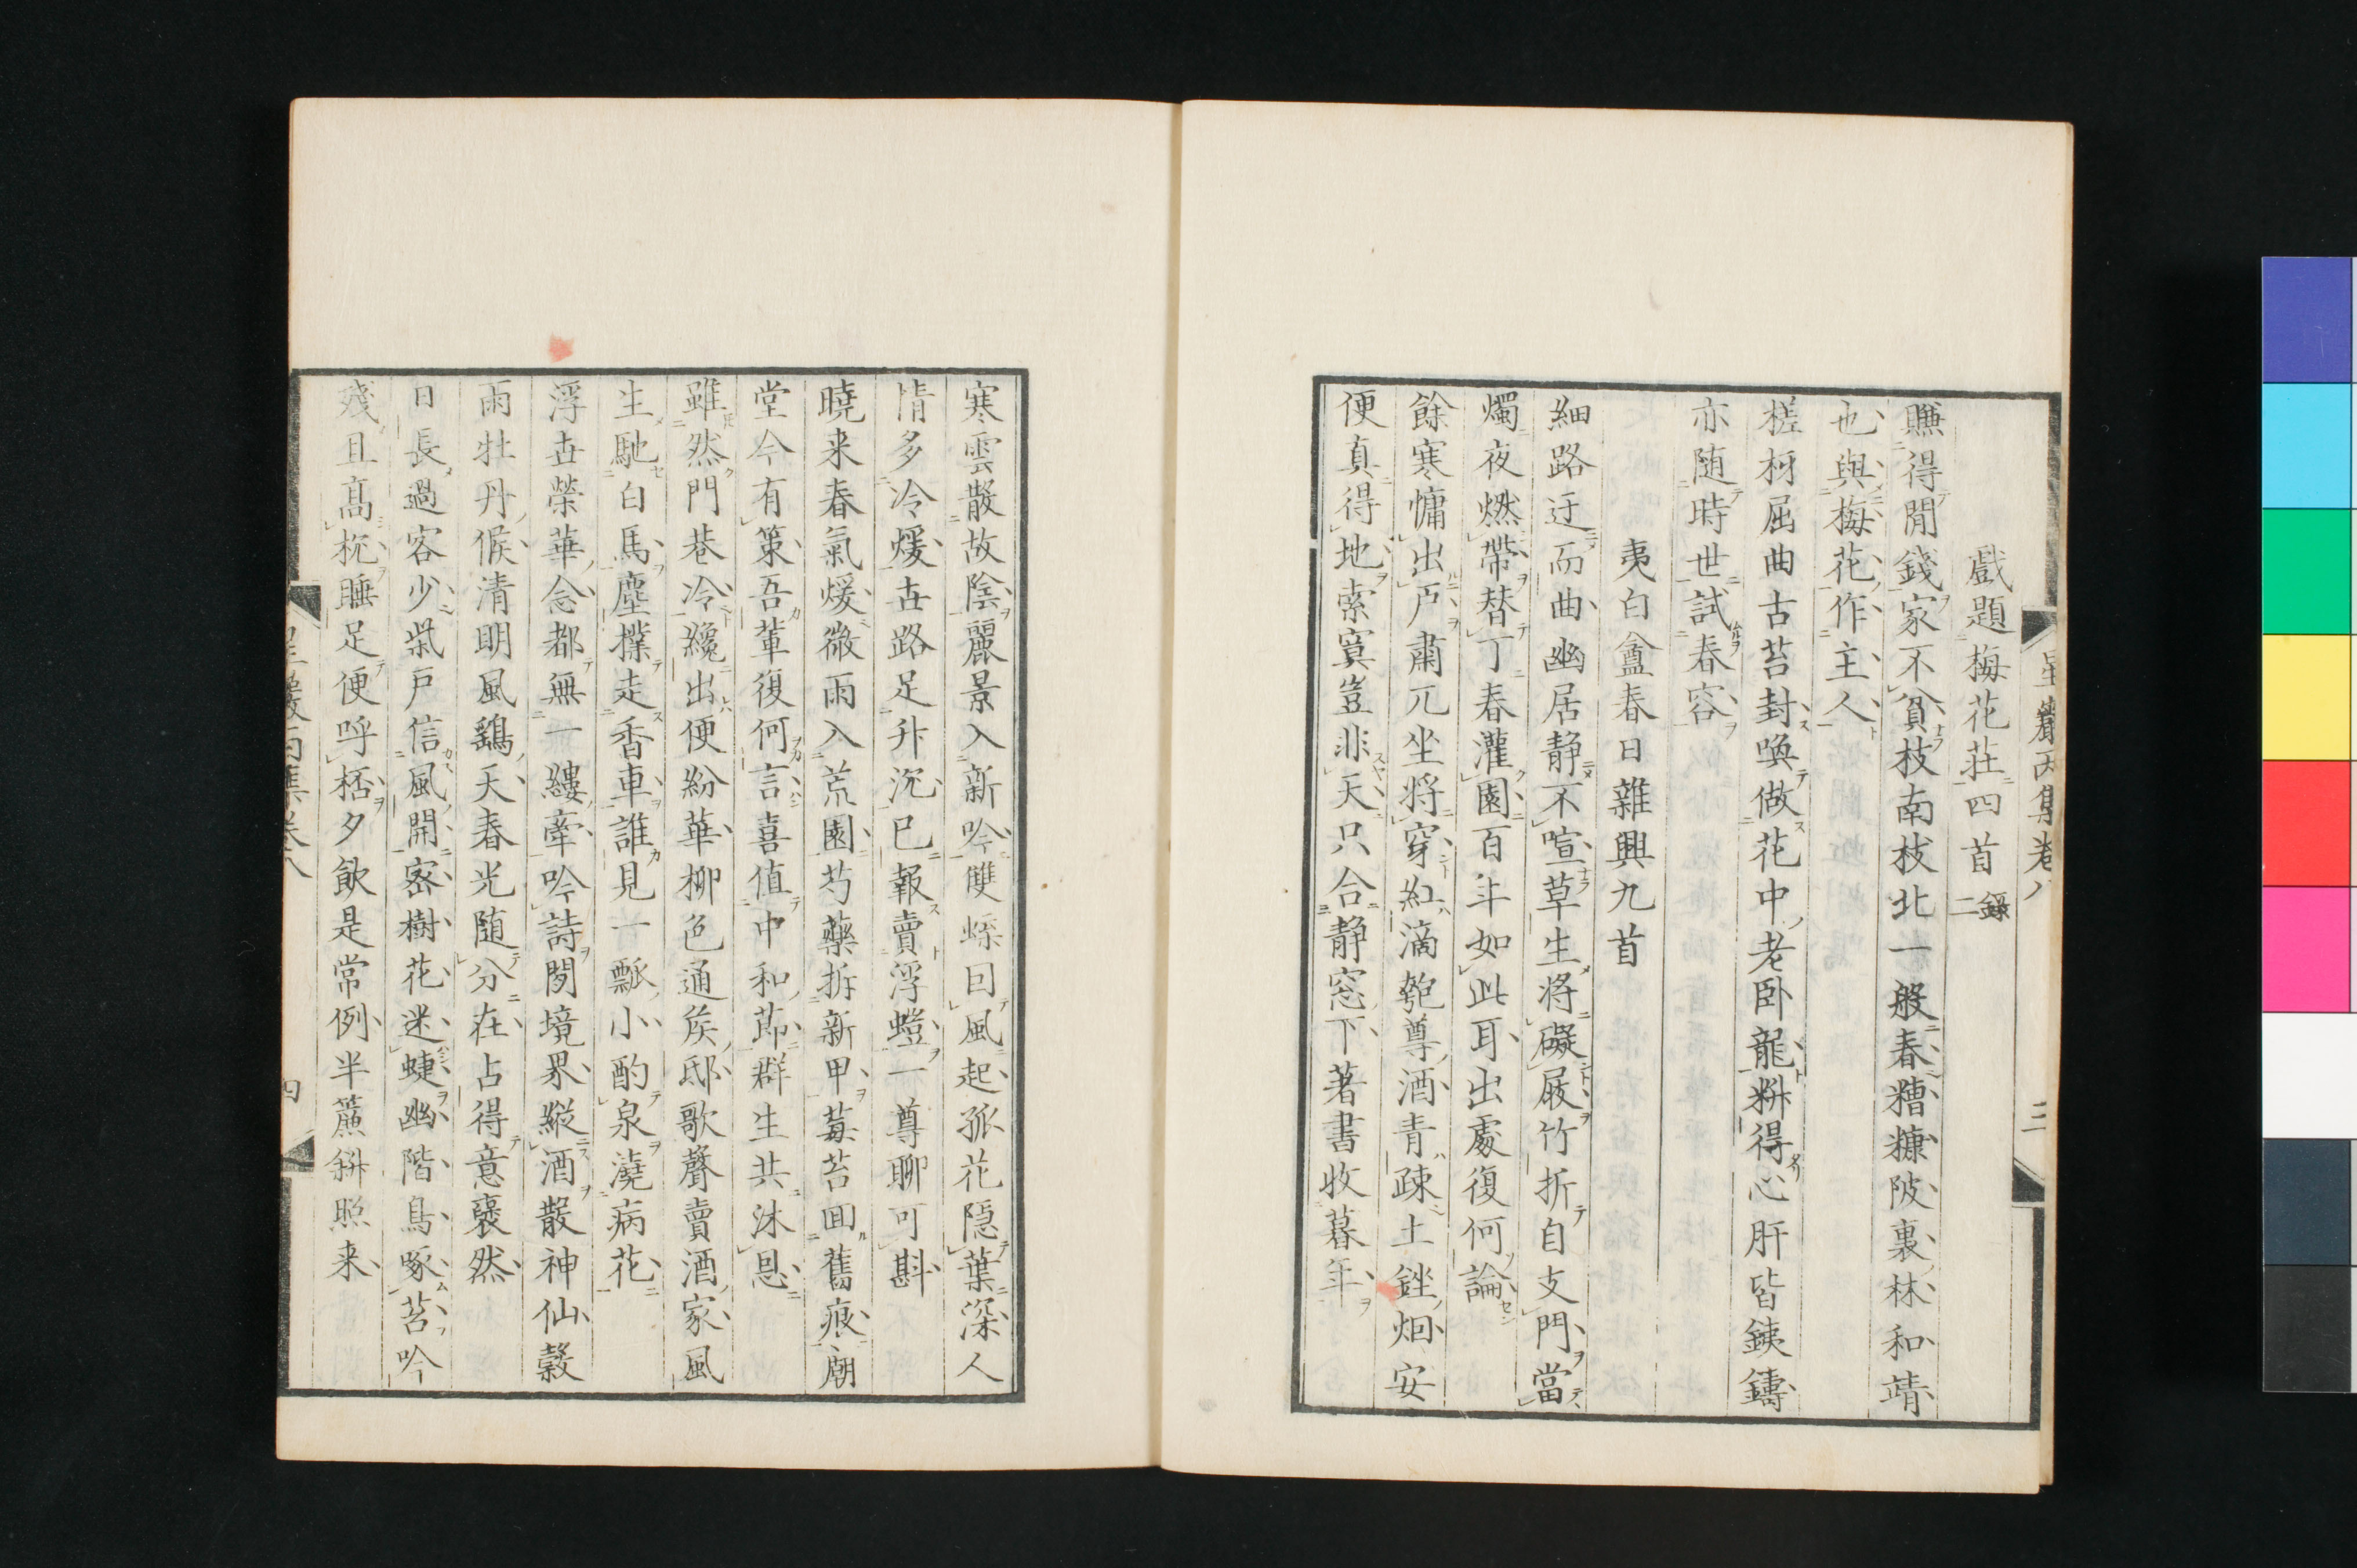 星巖丙集卷八
三
戲題梅花莊四首錄二
賺得閒錢家不貧枝南枝北一般春糟糠陂裏林和靖
也與梅花作主人
槎枒屈曲古苔封喚做花中老臥龍料得心肝皆鐵鑄
亦隨時世試春容
夷白盦春日雜興九首
細路迂而曲幽居靜不喧草生將礙屐竹折自支門當
燭夜燃帶替丁春灌園百年如此耳出處復何論
餘寒慵出戶肅兀坐將穿紅滴匏尊酒青疎土銼烟安
便真得地索寞豈非天只合靜窓下著書收暮年
寒雲散故陰麗景入新吟雙蝶回風起孤花隱葉深人
情多冷煖世路足升沉已報賣浮螘一尊聊可斟
曉来春氣煖微雨入荒園芍藥拆新甲莓苔回舊痕廟
堂今有策吾輩復何言喜值中和節群生共沐恩
雖然門巷冷纔出便紛華柳色通矦邸歌聲賣酒家風
生馳白馬塵撲走香車誰見一瓢小酌泉澆病花
浮世榮華念都無一縷牽吟詩閒境界縱酒散神仙穀
雨牡丹候清明風鷂天春光隨分在占得意褎然
日長過客少柴戶信風開密樹花迷蜨幽階鳥啄苔吟
殘且高枕睡足便呼桮夕飲是常例半簾斜照来
星巖丙集卷八
四